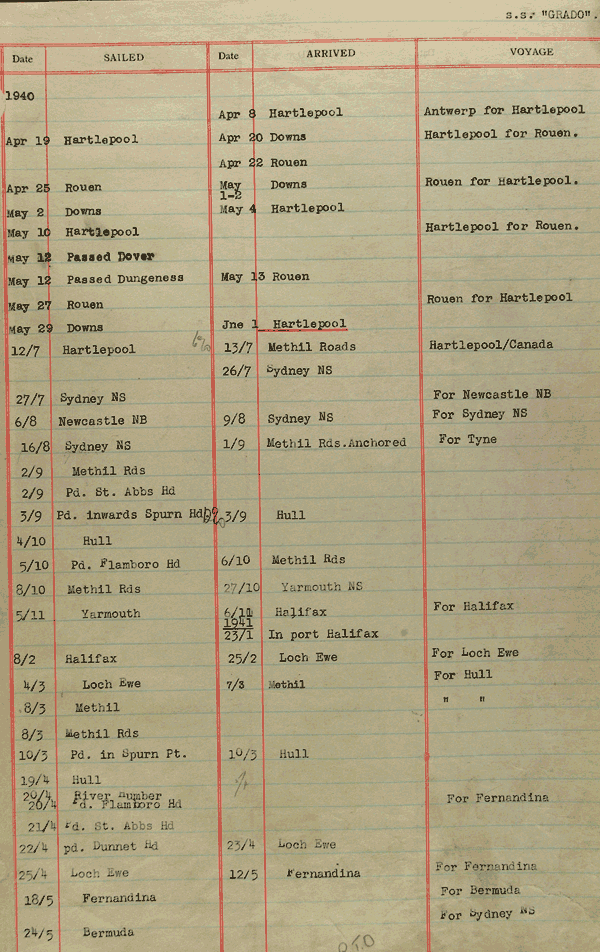 s.s. "GRADO".
Date SAILED Date ARRIVED VOYAGE
1940
Apr 8 Hartlepool Antwerp for Hartlepool
Apr 19 Hartlepool Apr 20 Downs Hartlepool for Rouen.
Apr 22 Rouen
Apr 25 Rouen May 1-2 Downs Rouen for Hartlepool.
May 2 Downs May 4 Hartlepool
May 10 Hartlepool Hartlepool for Rouen.
May 12 Passed Dover
May 12 Passed Dungeness May 13 Rouen
May 27 Rouen Rouen for Hartlepool
May 29 Downs Jne 1 Hartlepool
12/7 Hartlepool 13/7 Methil Roads Hartlepool/Canada
26/7 Sydney NS
27/7 Sydney NS For Newcastle NB
6/8 Newcastle NB 9/8 Sydney NS For Sydney NS
16/8 Sydney NS 1/9 Methil Rds.Anchored For Tyne
2/9 Methil Rds
2/9 Pd. St. Abbs Hd
3/9 Pd. inwards Spurn Hd 3/9 Hull
4/10 Hull
5/10 Pd. Flamboro Hd 6/10 Methil Rds
8/10 Methil Rds 27/10 Yarmouth NS
5/11 Yarmouth 6/11 Halifax For Halifax
1941
23/1 In port Halifax
8/2 Halifax 25/2 Loch Ewe For Loch Ewe
4/3 Loch Ewe 7/3 Methil For Hull
8/3 Methil " "
8/3 Methil Rds
10/3 Pd. in Spurn Pt. 10/3 Hull
19/4 Hull
20/4 River Humber
20/4 Pd. Flamboro Hd For Fernandina
21/4 Pd. St. Abbs Hd
22/4 pd. Dunnet Hd 23/4 Loch Ewe
25/4 Loch Ewe 12/5 Fernandina For Fernandina
18/5 Fernandina For Bermuda
24/5 Bermuda For Sydney NS